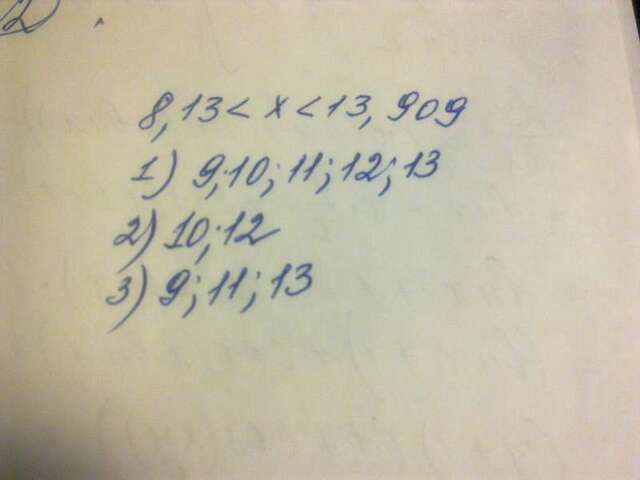 2)
8,13 < x < 13,909
1) 9; 10; 11; 12; 13
2) 10; 12
3) 9; 11; 13